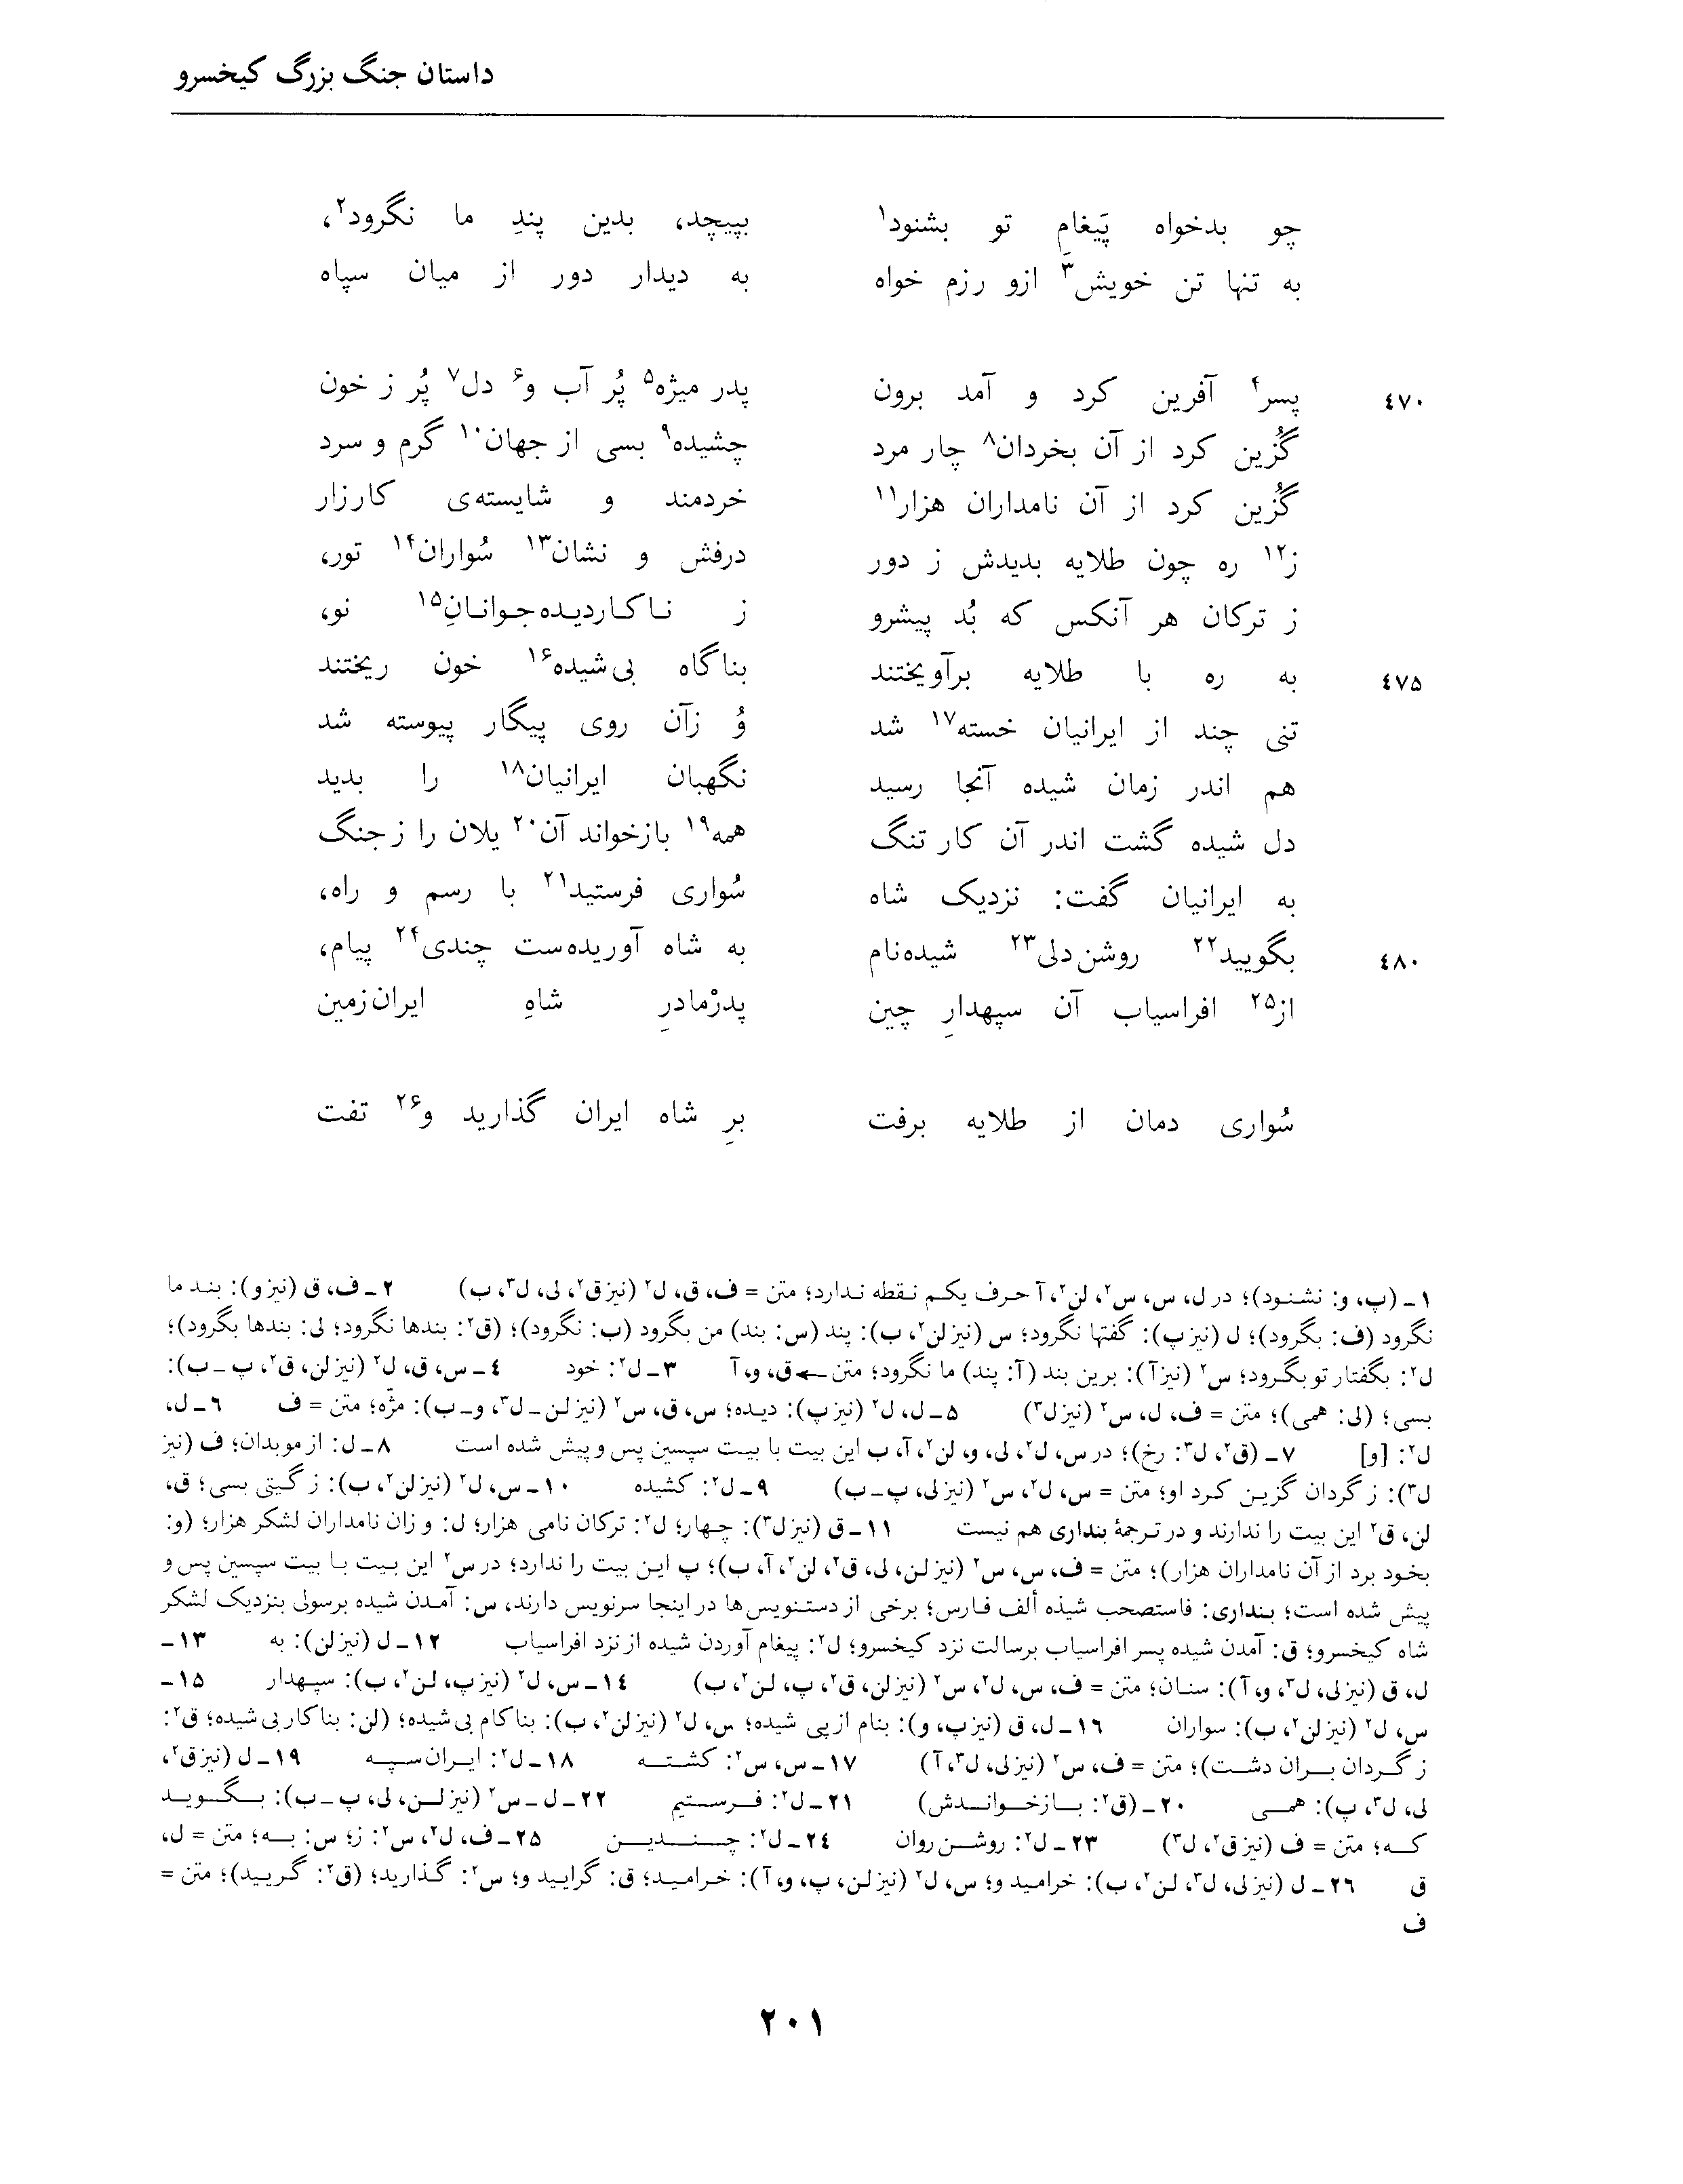 داستان جنگ بزرگ کیخسرو
چو بدخواه پَیغامِ تو بشنود۱ بپیچد، بدین پندِ ما نگرود۲،
به تنها تن خویش۳ ازو رزم خواه به دیدار دور از میان سپاه
۴۷۰ پسر۴ آفرین کرد و آمد برون پدر میژه۵ پُر آب و۶ دل۷ پُر ز خون
گُزین کرد از آن بخردان۸ چار مرد چشیده۹ بسی از جهان۱۰ گرم و سرد
گُزین کرد از آن نامداران هزار۱۱ خردمند و شایسته‌ی کارزار
ز۱۲ ره چون طلایه بدیدش ز دور درفش و نشان۱۳ سُواران۱۴ تور،
ز ترکان هر آنکس که بُد پیشرو ز ناکاردیده‌جوانانِ۱۵ نو،
۴۷۵ به ره با طلایه برآویختند بناگاه بی‌شیده۱۶ خون ریختند
تنی چند از ایرانیان خسته۱۷ شد وُ زآن روی پیگار پیوسته شد
هم اندر زمان شیده آنجا رسید نگهبان ایرانیان۱۸ را بدید
دل شیده گشت اندر آن کار تنگ همه۱۹ بازخواند آن۲۰ یلان را ز جنگ
به ایرانیان گفت: نزدیک شاه سُواری فرستید۲۱ با رسم و راه،
۴۸۰ بگویید۲۲ روشن‌دلی۲۳ شیده‌نام به شاه آوریده‌ست چندی۲۴ پیام،
از۲۵ افراسیاب آن سپهدارِ چین پدرْمادرِ شاهِ ایران‌زمین
سُواری دمان از طلایه برفت برِ شاه ایران گذارید و۲۶ تفت
۱ـ (پ، و: نشنود)؛ در ل، س، س۲، لن۲، آ حرف یکم نقطه ندارد؛ متن = ف، ق، ل۲ (نیز ق۲، لی، ل۳، ب) ۲ـ ف، ق (نیز و): بند ما
نگرود (ف: بگرود)؛ ل (نیز پ): گفتها نگرود؛ س (نیز لن۲، ب): پند (س: بند) من بگرود (ب: نگرود)؛ (ق۲: بندها نگرود؛ لی: بندها بگرود)؛
ل۲: بگفتار تو بگرود؛ س۲ (نیز آ): برین بند (آ: پند) ما نگرود؛ متن ← ق، و، آ ۳ـ ل۲: خود ۴ـ س، ق، ل۲ (نیز لن، ق۲، پ ـ ب):
بسی؛ (لی: همی)؛ متن = ف، ل، س۲ (نیز ل۳) ۵ـ ل، ل۲ (نیز پ): دیده؛ س، ق، س۲ (نیز لن ـ ل۳، و ـ ب): مژّه؛ متن = ف ۶ـ ل،
ل۲: [و] ۷ـ (ق۲، ل۳: رخ)؛ در س، ل۲، لی، و، لن۲، آ، ب این بیت با بیت سپسین پس و پیش شده است ۸ـ ل: از موبدان؛ ف (نیز
ل۳): ز گردان گزین کرد او؛ متن = س، ل۲، س۲ (نیز لی، پ ـ ب) ۹ـ ل۲: کشیده ۱۰ـ س، ل۲ (نیز لن۲، ب): ز گیتی بسی؛ ق،
لن، ق۲ این بیت را ندارند و در ترجمهٔ بنداری هم نیست ۱۱ـ ق (نیز ل۳): چهار؛ ل۲: ترکان نامی هزار؛ ل: و زان نامداران لشکر هزار؛ (و:
بخود برد از آن نامداران هزار)؛ متن = ف، س، س۲ (نیز لن، لی، ق۲، لن۲، آ، ب)؛ پ این بیت را ندارد؛ در س۲ این بیت با بیت سپسین پس و
پیش شده است؛ بنداری: فاستصحب شیذه ألف فارس؛ برخی از دستنویس‌ها در اینجا سرنویس دارند، س: آمدن شیده برسولی بنزدیک لشکر
شاه کیخسرو؛ ق: آمدن شیده پسر افراسیاب برسالت نزد کیخسرو؛ ل۲: پیغام آوردن شیده از نزد افراسیاب ۱۲ـ ل (نیز لن): به ۱۳ـ
ل، ق (نیز لی، ل۳، و، آ): سنان؛ متن = ف، س، ل۲، س۲ (نیز لن، ق۲، پ، لن۲، ب) ۱۴ـ س، ل۲ (نیز پ، لن۲، ب): سپهدار ۱۵ـ
س، ل۲ (نیز لن۲، ب): سواران ۱۶ـ ل، ق (نیز پ، و): بنام از پی شیده؛ س، ل۲ (نیز لن۲، ب): بناکام بی‌شیده؛ (لن: بناکار بی‌شیده؛ ق۲:
ز گردان بران دشت)؛ متن = ف، س۲ (نیز لی، ل۳، آ) ۱۷ـ س، س۲: کشته ۱۸ـ ل۲: ایران سپه ۱۹ـ ل (نیز ق۲،
لی، ل۳، پ): همی ۲۰ـ (ق۲: بازخواندش) ۲۱ـ ل۲: فرستیم ۲۲ـ ل ـ س۲ (نیز لن، لی، پ ـ ب): بگوید
که؛ متن = ف (نیز ق۲، ل۳) ۲۳ـ ل۲: روشن روان ۲۴ـ ل۲: چندین ۲۵ـ ف، ل۲، س۲: ز؛ س: به؛ متن = ل،
ق ۲۶ـ ل (نیز لی، ل۳، لن۲، ب): خرامید و؛ س، ل۲ (نیز لن، پ، و، آ): خرامید؛ ق: گرایید و؛ س۲: گذارید؛ (ق۲: گریید)؛ متن =
ف
۲۰۱